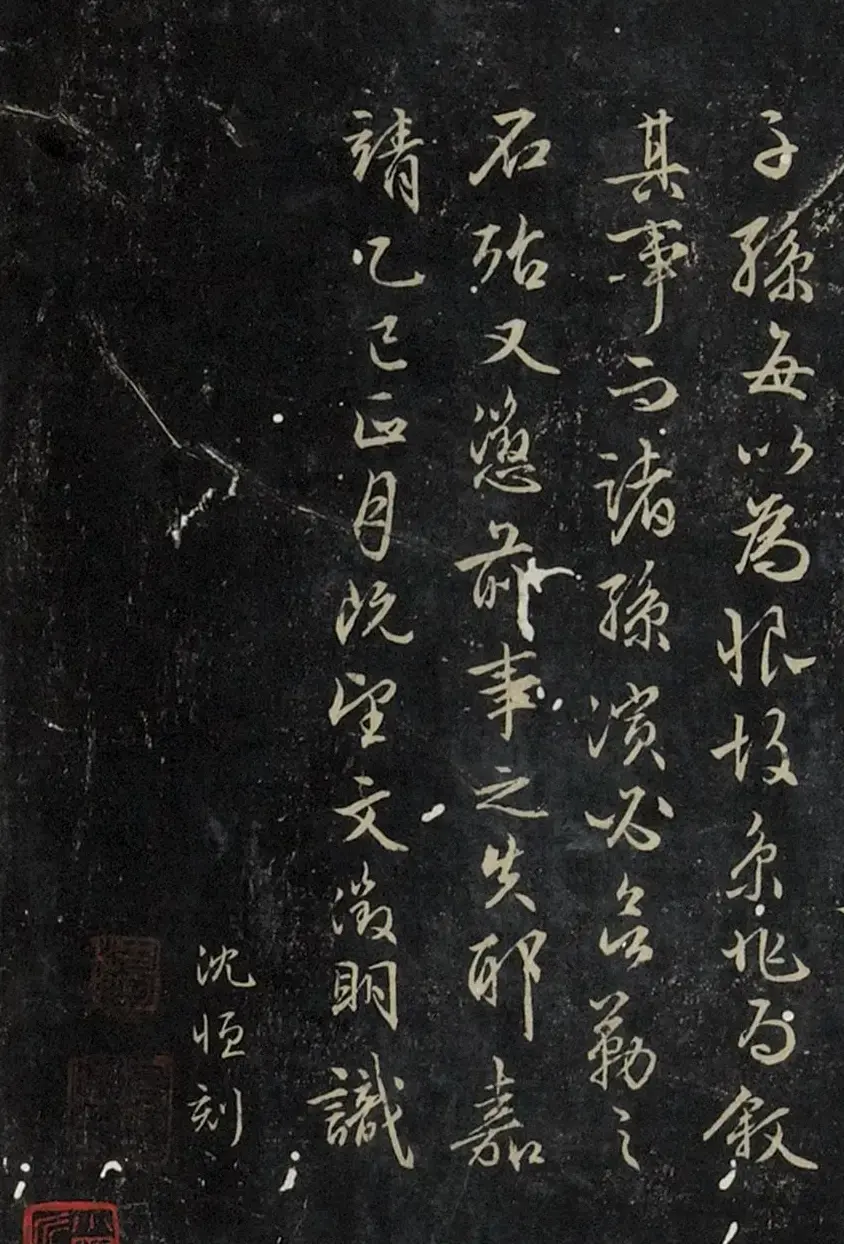 子孫每以為恨故余為敘
其事而諸孫必勒之
石殆又懲前事之失耶嘉
靖乙巳正月既望文徵明識
沈恒刻